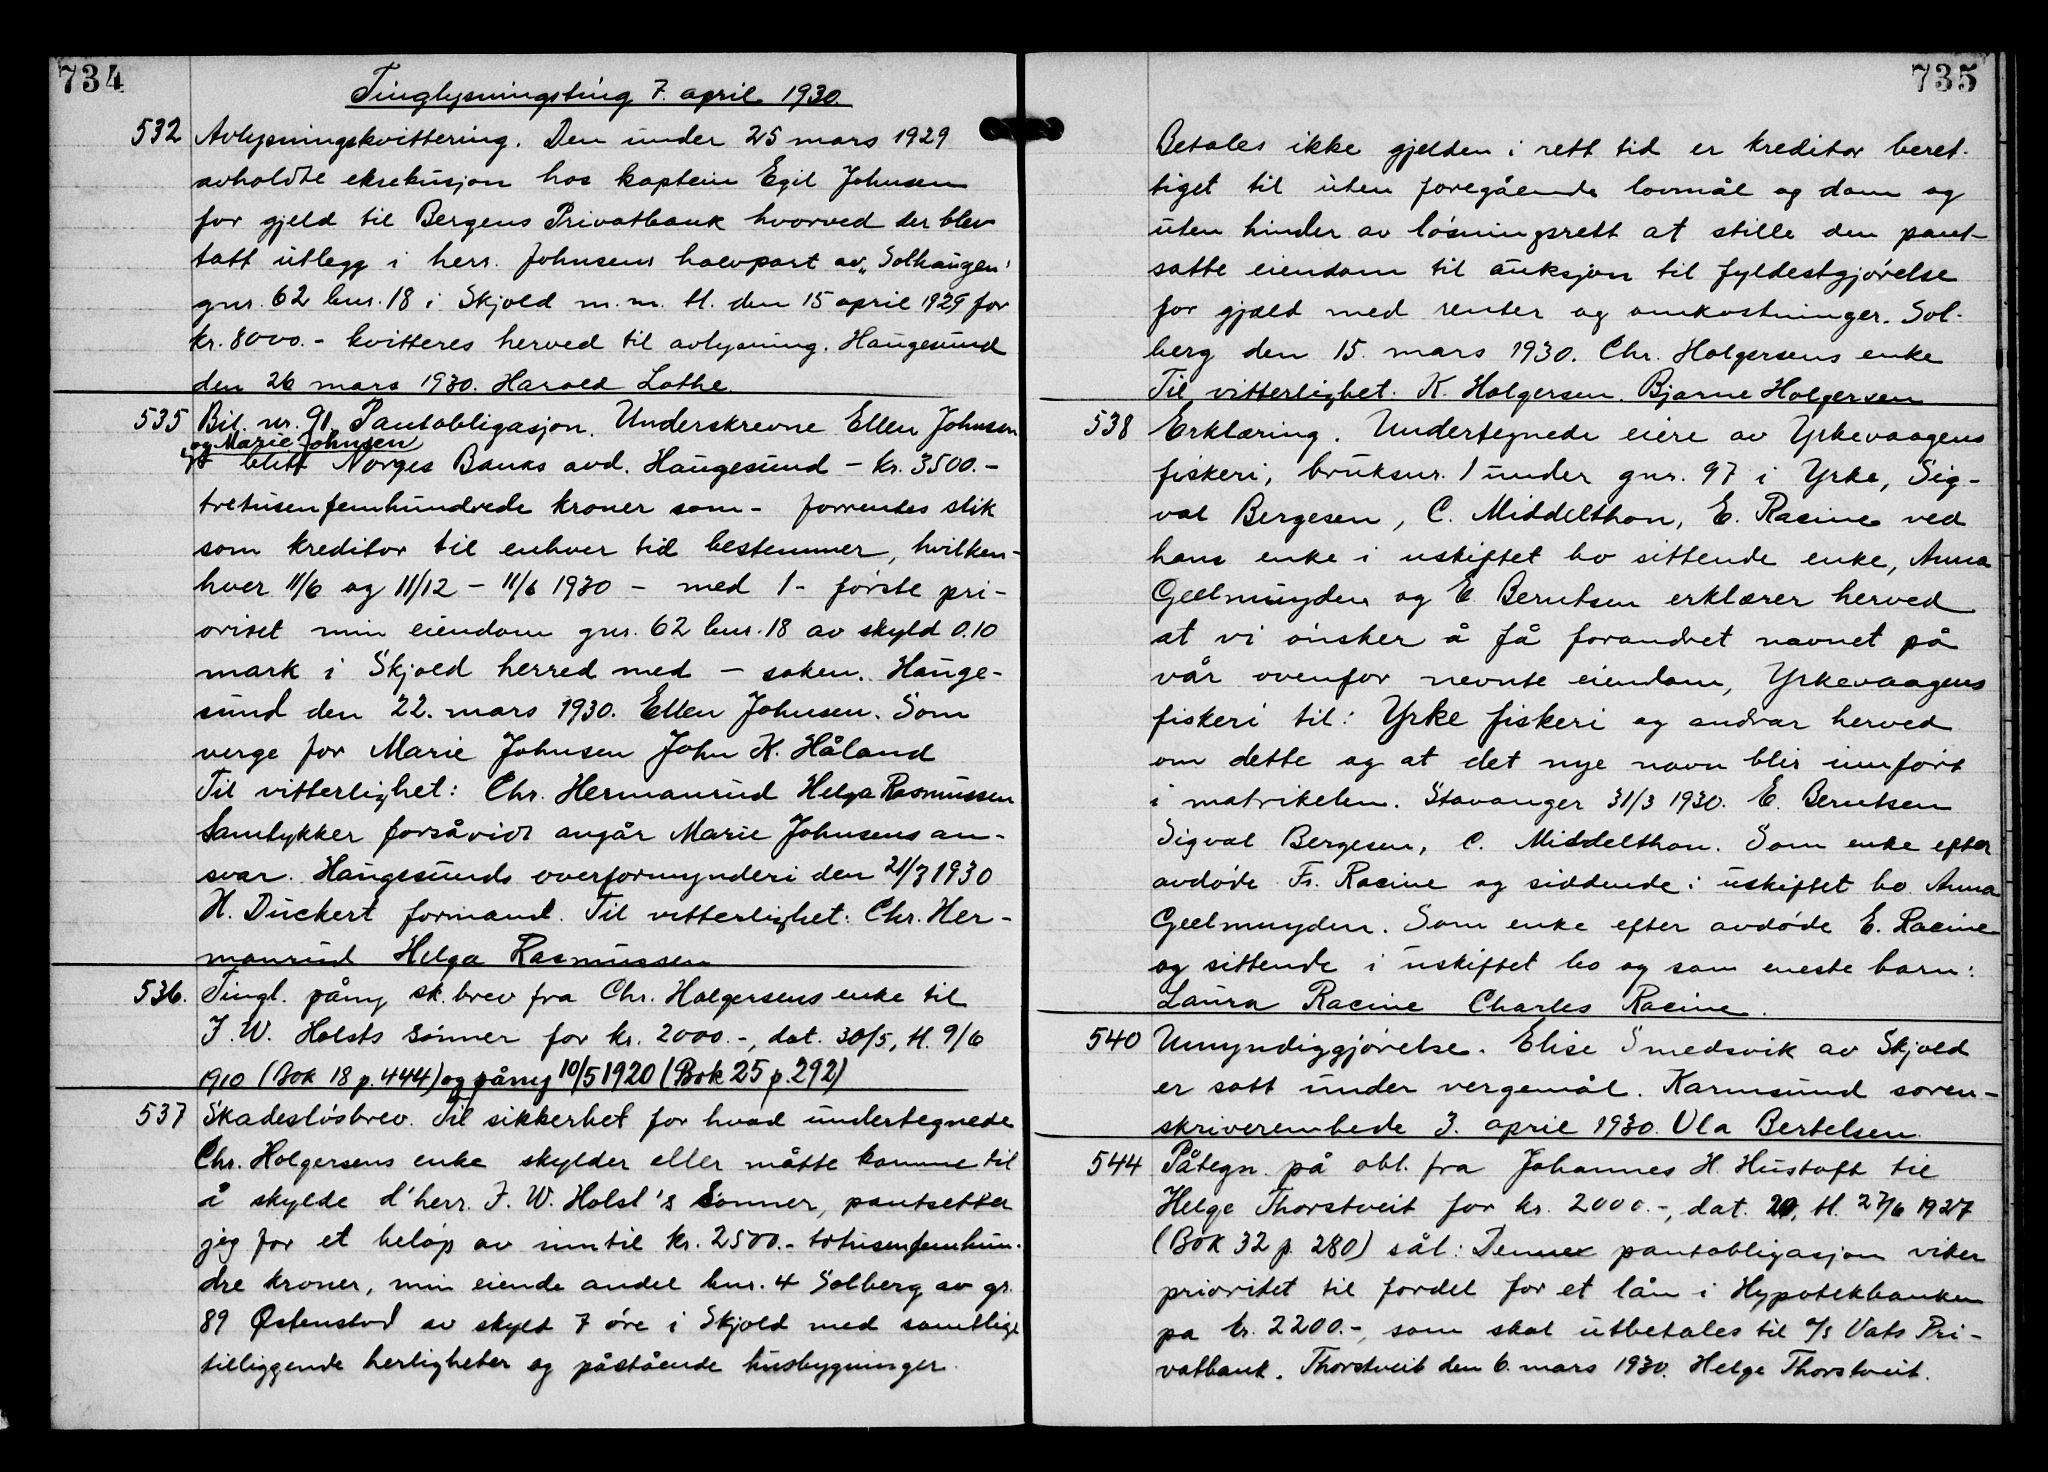 734
Tinglysningsting 7. april 1930.
532 Avlysningskvittering. Den under 25 mars 1929
avholdte eksekusjon hos kaptein Egil Johnsen
for gjeld til Bergens Privatbank hvorved der blev
tatt utlegg i herr. Johnsens halvpart av „Solhaugen"
gnr. 62 bnr. 18 i Skjold m. m. tl. den 15 april 1929 for
kr. 8000.- kvitteres herved til avlysning. Haugesund
den 26 mars 1930. Harald Lothe
535 Bil. nr. 91. Pantobligasjon. Underskrevne Ellen Johnsen
og Marie Johnsen
blitt Norges Banks avd. Haugesund - kr. 3500.-
tretusenfemhundrede kroner som - forrentes slik
som kreditor til enhver tid bestemmer, hvilken-
hver 11/6 og 11/12 - 11/6 1930 - med 1- første pri-
oritet min eiendom gnr. 62 bnr. 18 av skyld 0.10
mark i Skjold herred med - saken. Hauge-
sund den 22. mars 1930. Ellen Johnsen. Som
verge for Marie Johnsen John K. Håland
Til vitterlighet: Chr. Hermanrud Helga Rasmussen
Samtykker forsåvidt angår Marie Johnsens an-
svar. Haugesunds overformynderi den 21/3 1930
H. Duckert formand. Til vitterlighet: Chr. Her-
manrud Helga Rasmussen
536. Tingl. påny sk.brev fra Chr. Holgersens enke til
J. W. Holsts Sønner for kr. 2000.-, dat. 30/5, tl. 9/6
1910 (Bok 18 p. 444) og påny 10/5 1920 (Bok 25 p. 292)
537 Skadesløsbrev. Til sikkerhet for hvad undertegnede
Chr. Holgersens enke skylder eller måtte komme til
å skylde d'herr. J. W. Holst's Sønner, pantsetter
jeg for et beløp av inntil kr. 2500.- totusenfemhun-
dre kroner, min eiende andel bnr. 4 Solberg av gr.
89 Østenstad av skyld 7 øre i Skjold med samtlige
tilliggende herligheter og påstående husbygninger.
735
Betales ikke gjelden i rett tid er kreditor beret-
tiget til uten foregående lovmål og dom og
uten hinder av løsningsrett at stille den pant-
satte eiendom til auksjon til fyldestgjørelse
for gjæld med renter og omkostninger. Sol-
berg den 15. mars 1930. Chr. Holgersens enke
Til vitterlighet. K. Holgersen. Bjarne Holgersen
538 Erklæring. Undertegnede eiere av Yrkevaagens
fiskeri, bruksnr. 1 under gnr. 97 i Yrke, Sig-
val Bergesen, C. Middelthon, E. Racine ved
hans enke i uskiftet bo sittende enke, Anna
Geelmuyden og E. Berntsen erklærer herved
at vi ønsker å få forandret navnet på
vår ovenfor nevnte eiendom, Yrkevaagens
fiskeri til: Yrke fiskeri og andrar herved
om dette og at det nye navn blir innført
i matrikelen. Stavanger 31/3 1930. E. Berntsen
Sigval Bergesen, C. Middelthon. Som enke efter
avdøde Fr. Racine og siddende i uskiftet bo Anna
Geelmuyden. Som enke efter avdøde E. Racine
og sittende i uskiftet bo og som eneste barn:
Laura Racine Charles Racine.
540 Umyndiggjørelse. Elise Smedsvik av Skjold
er satt under vergemål. Karmsund soren-
skriverembede 3. april 1930. Ola Bertelsen.
544 Påtegn. på obl. fra Johannes H. Hustoft til
Helge Thorstveit for kr. 2000.-, dat. 20, tl. 27/6 1927
(Bok 32 p. 280) sål: Denne pantobligasjon viker
prioritet til fordel for et lån i Hypotekbanken
pa kr. 2200.-, som skal utbetales til a/s Vats Pri-
vatbank. Thorstveit den 6. mars 1930. Helge Thorstveit.